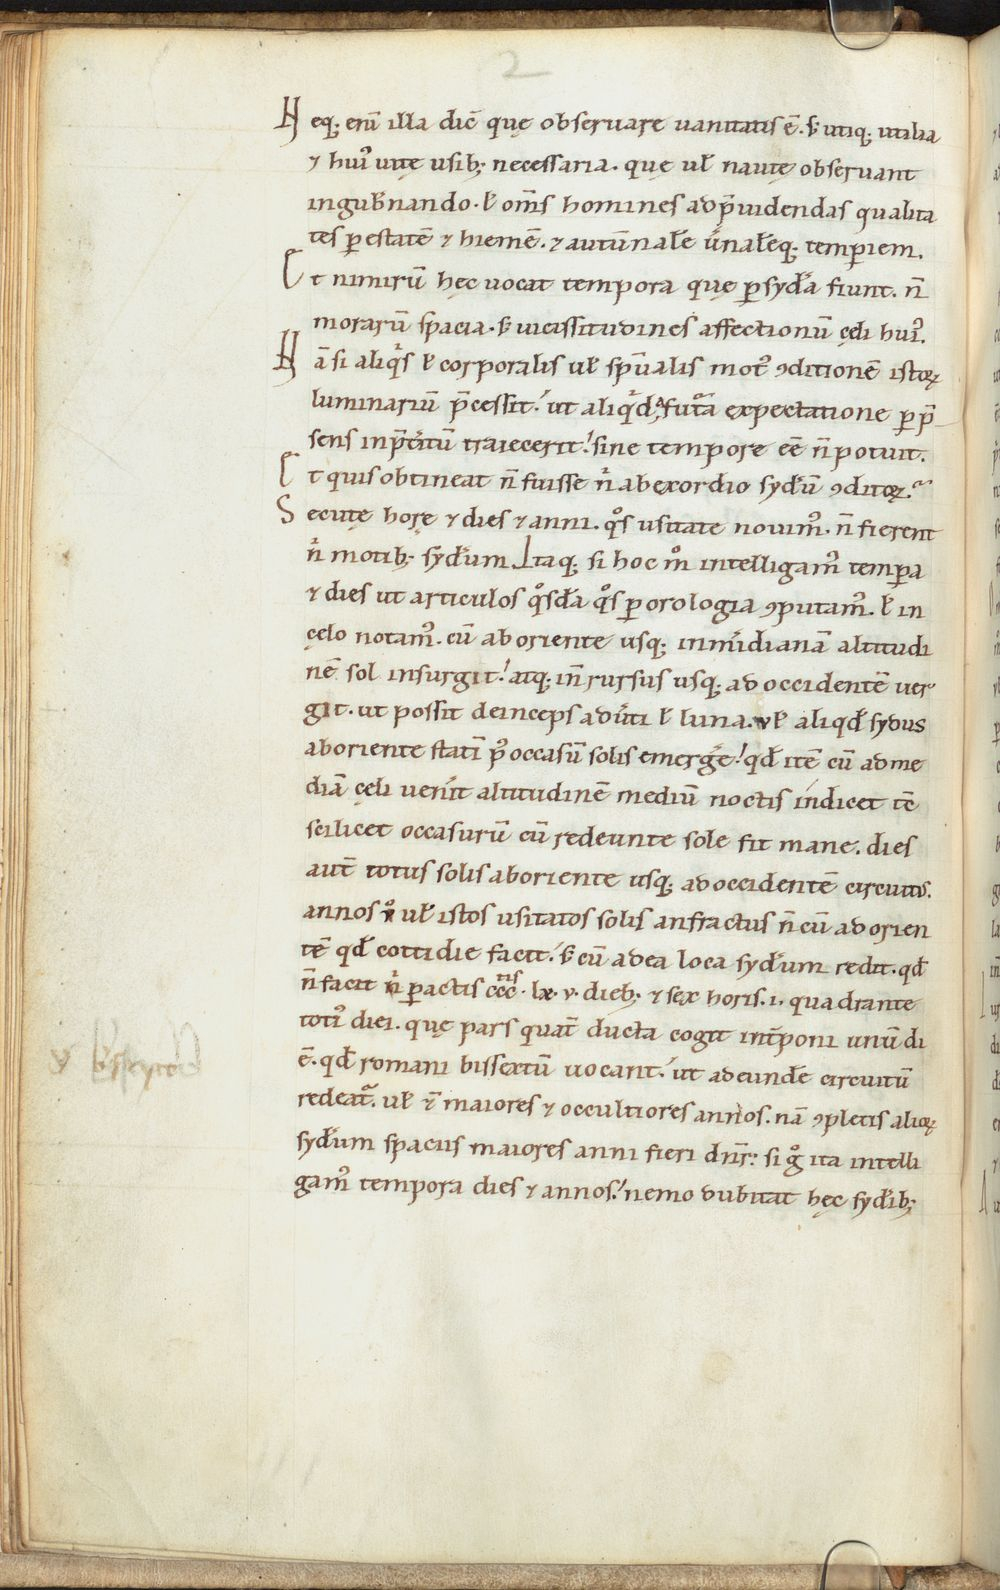 2
Neq; eni̅ illa dic̅ que̜ observare vanitatis e̅. s; utiq; utilia
⁊ hui᷒ uite̜ usib; necessaria. que̜ ul̵ naute̜ observant
in gub̵nando. l̵ om̅s homines ad p̅videndas qualita
tes p̲ estate̅ ⁊ hieme̅. ⁊ autu̅nale̅ u̅nale̅q; temp̲iem.
Et nimiru̅ he̜c vocat tempora que̜ p̲ syd̵a fiunt. n̅
moraru̅ spacia. s; vicissitudines affectionu̅ ce̜li hui᷒.
Na̅ si aliqͥs l̵ corporalis ul̵ sp̅ualis mot᷒ ꝯditione̅ istoꝝ
luminariu̅ p̅cessit. ut aliqͥd a futᷓa expectatione p̲ p̅
sens in p̅t̅itu̅ traiecerit. sine tempore e̅e n̅ potuit.
Et quis obtineat n̅ fuisse nͥ ab exordio syd̵u̅ ꝯditoꝝ.
Secute̜ hore̜ ⁊ dies ⁊ anni. qͦs usitate novim᷒. n̅ fierent
nͥ motib; syd̵um Itaq; si hoc mͦ intelligam᷒ temp̲a
⁊ dies ut articulos qͦsd̵a qͦs p̲ orologia ꝯputam᷒. l̵ in
ce̜lo notam᷒. cu̅ ab oriente usq; in m̅idiana̅ altitudi
ne̅ sol insurgit. atq; in̅ rursus usq; ad occidente̅ ver
git. ut possit deinceps adv̅ti l̵ luna. vl̵ aliqd̵ sydus
ab oriente stati̅ p᷒ occasu̅ solis emerg̅e. qd̵ ite̅ cu̅ ad me
dia̅ ce̜li ven̅it altitudine̅ mediu̅ noctis indicet te̅
scilicet occasuru̅ cu̅ redeunte sole fit mane. dies
aut̅ totus solis ab oriente usq; ad occidente̅ circuit᷒.
annos vͦ ul̵ istos usitatos solis anfractus n̅ cu̅ ad orien
te̅ qd̵ cottidie facit. s; cu̅ ad ea loca syd̵um redit. qd̵
n̅ facit nͥ p̲actis cccᵗⁱˢ. lx. v. dieb; ⁊ sex horis. i. quadrante
toti᷒ diei. que̜ pars quat̅ ducta cogit int̅poni unu̅ di
e̅. qd̵ romani bissextu̅ vocant. ut ad eund̵e circuitu̅
redeat᷑. ul̵ e̅ maiores ⁊ occultiores annos. na̅ ꝯpletis alioꝝ
syd̵um spaciis maiores anni fieri dn̅r: si gͦ ita intelli
gam᷒ tempora dies ⁊ annos. nemo dubitat he̜c syd̵ib;